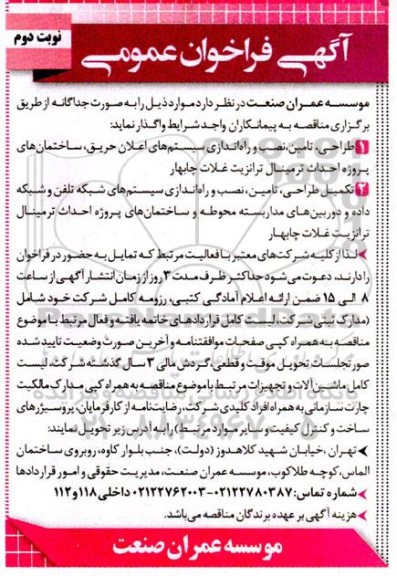 نوبت دوم
آگهی فراخوان عمومی
موسسه عمران صنعت در نظر دارد موارد ذیل را به صورت جداگانه از طریق
برگزاری مناقصه به پیمانکاران واجد شرایط واگذار نماید:
1 طراحی، تامین، نصب و راه اندازی سیستم های اعلان حریق، ساختمان های
پروژه احداث ترمینال ترانزیت غلات چابهار
2 تکمیل طراحی، تامین، نصب و راه اندازی سیستم های شبکه تلفن و شبکه
داده و دوربین های مداربسته محوطه و ساختمان های پروژه احداث ترمینال
ترانزیت غلات چابهار
لذا از کلیه شرکت های معتبر با فعالیت مرتبط که تمایل به حضور در فراخوان
را دارند، دعوت می شود حداکثر ظرف مدت 3 روز از زمان انتشار آگهی از ساعت
8 الی 15 ضمن ارائه اعلام آمادگی کتبی، رزومه کامل شرکت خود شامل
(مدارک ثبتی شرکت، لیست کامل قراردادهای خاتمه یافته و فعال مرتبط با موضوع
مناقصه به همراه کپی صفحات موافقتنامه و آخرین صورت وضعیت تایید شده
صورتجلسات تحویل موقت و قطعی، گردش مالی 3 سال گذشته شرکت، لیست
کامل ماشین آلات و تجهیزات مرتبط با موضوع مناقصه به همراه کپی مدارک مالکیت
چارت سازمانی به همراه افراد کلیدی شرکت، رضایت نامه از کارفرمایان، پروسیژرهای
ساخت و کنترل کیفیت و سایر موارد مرتبط) را به آدرس زیر تحویل نمایند:
تهران، خیابان شهید کلاهدوز (دولت)، جنب بلوار کاوه، روبروی ساختمان
الماس، کوچه طلاکوب، موسسه عمران صنعت، مدیریت حقوقی و امور قراردادها
شماره تماس: 02122780387-02122762003 داخلی 118 و 112
هزینه آگهی بر عهده برندگان مناقصه می باشد.
موسسه عمران صنعت